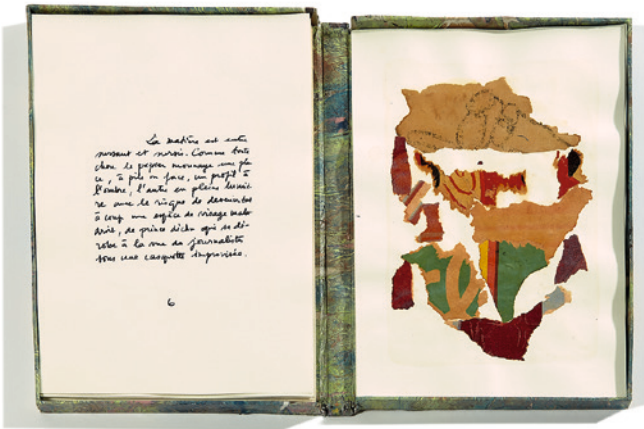 La matière est entre
sursaut et sursis. Comme toute
chose le papier monnaye une pla
ce, à pile ou face, un profil à
l'ombre, l'autre en pleine lumiè
re avec le risque de devenir
à coup une espèce de visage mala
droit, de prince déchu qui se dé-
robe à la vue journaliste
sous une casquette improvisée.
6